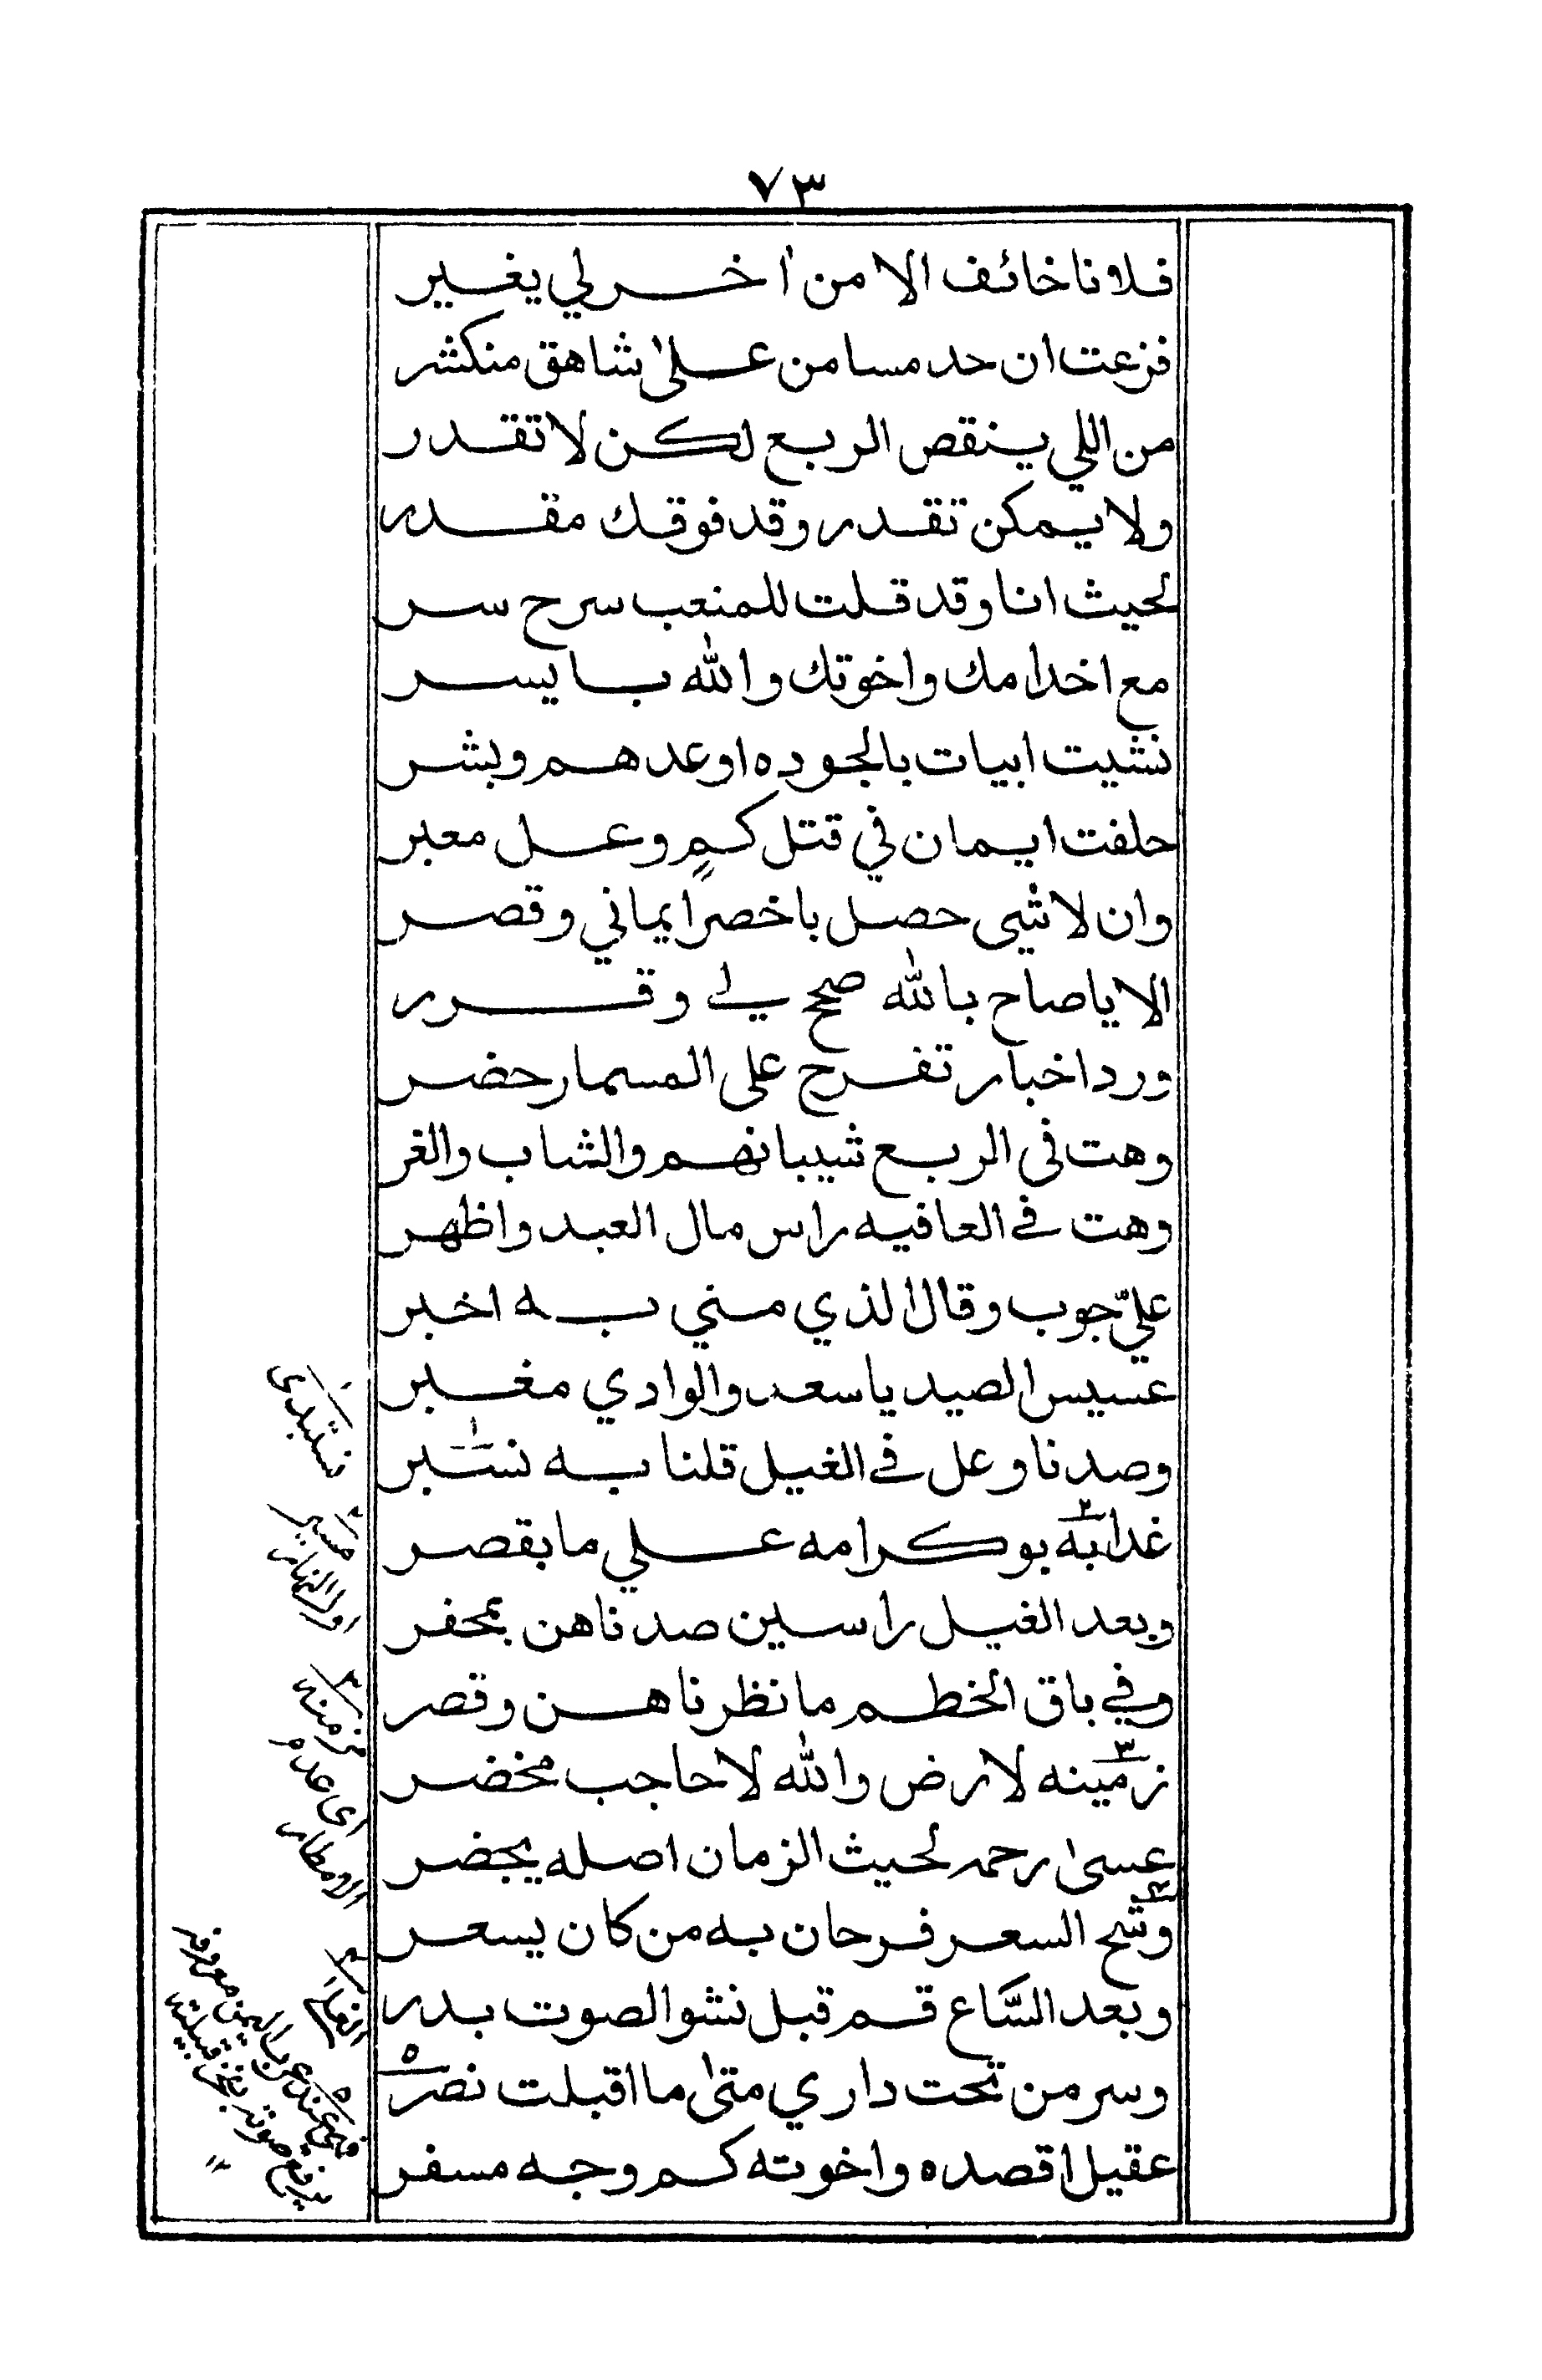 ٧٣
فلا نا خائف الا من اخر لي يغير
فزعت ان حد مسا من على شاهق منكشر
من اللي ينقص الربع لكن لا تقدر
ولا يمكن تقدر وقد فوقك مقدر
لحيث انا وقد قلت للمنعب سرح سر
مع اخدامك واخوتك والله با يسر
نشيت ابيات بالجوده اوعدهم وبشر
حلفت ايمان في قتل كم وعل معبر
وان لا شي حصل با خصر ايماني وقصر
الا يا صاح بالله صحح لي وقرر
ورد اخبار تفرح على المسمار حضر
وهت في الربع شيبانهم والشاب والغر
وهت في العافيه راس مال العبد واظهر
عليّ جوب وقال الذي مني به اخبر
عسيس الصيد يا سعد والوادي مغبر
وصدنا وعل في الغيل قلنا به نستبر ١
غدابه ٢ بو كرامه علي ما بقصر
وبعد الغيل راسين صدناهن بمحفر
وفي باق الخطم ما نظرناهن وقصر
زمينه ٣ لارض والله لا حاجب مخضر
عسى رحمه لحيث الزمان اصله يحضر
وشح ٤ السعر فرحان به من كان يسعر
وبعد السَّاع قم قبل نشو الصوت بدر
وسر من تحت داري متى ما اقبلت نصر ٥
عقيل اقصده واخوته كم وجه مسفر
١ نستبدى
٢ مسير
اول النهار
٣ مزمنه
اى عدم
الامطار
٤ الغلا